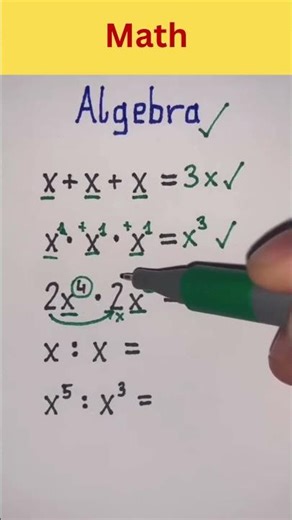 Math
Algebra ✓
x + x + x = 3x ✓
x¹ · x¹ · x¹ = x³ ✓
+ +
2x⁴ · 2x =
x
x : x =
x⁵ : x³ =